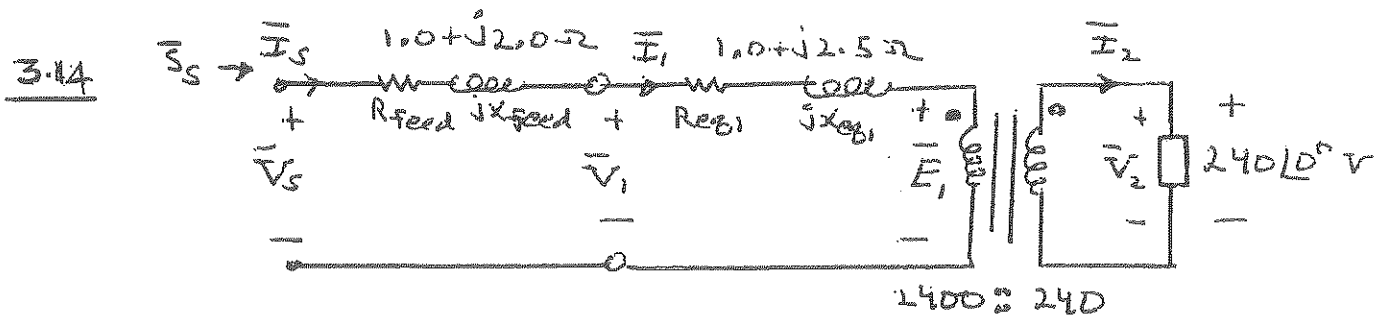 3.14 S̄s → Īs 1.0+j2.0Ω Ī₁ 1.0+j2.5Ω Ī₂
Rfeed jXfeed Req₁ jXeq₁
+ + + + +
V̄s V̄₁ Ē₁ V̄₂ 240∠0° V
− − − − −
2400 : 240